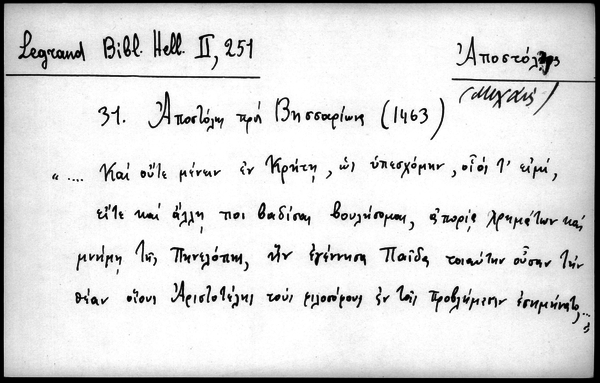 Legrand Bibl. Hell. II, 251
Ἀποστόλης
(Μιχαήλ)
31. Ἀποστόλη πρὸς Βησσαρίωνα (1463)
« .... Καὶ οὔτε μένειν ἐν Κρήτῃ, ὡς ὑπεσχόμην, οἷός τ' εἰμί,
εἴτε καὶ ἄλλῃ ποι βαδίσαι βουλήσομαι, ἀπορίᾳ χρημάτων καὶ
μνήμῃ τῆς Πηνελόπης, ἣν ἐγέννησα Παῖδα τοιαύτην οὖσαν τὴν
θέαν οἵους Ἀριστοτέλης τοὺς φιλοσόφους ἐν τοῖς προβλήμασιν ἐσημήνατο,...»